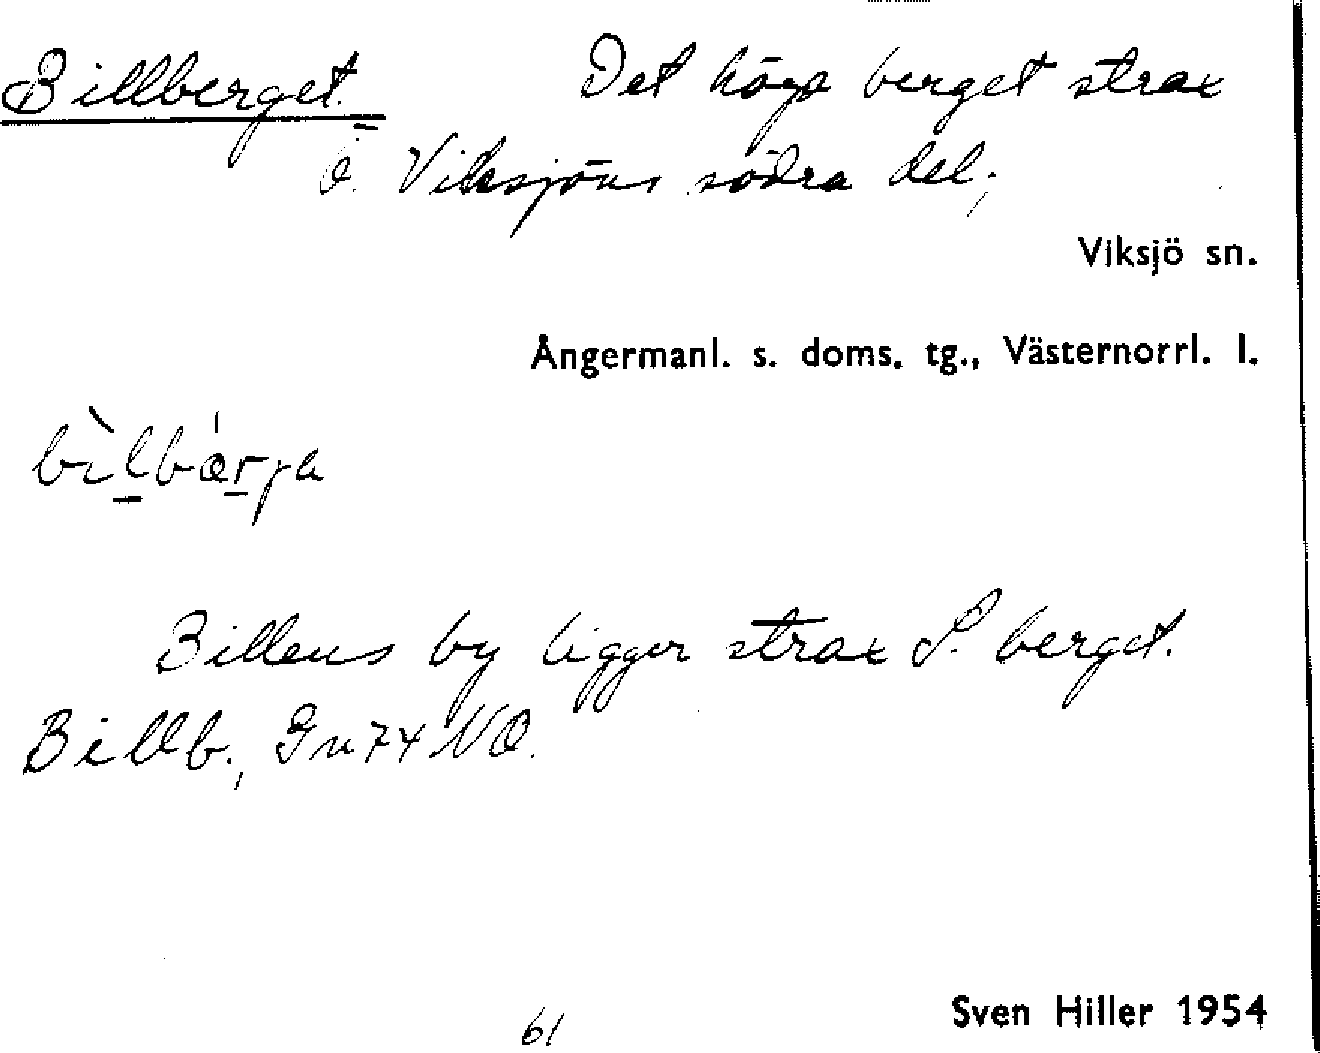 Billberget. Det höga berget strax
Ö. Viksjöns södra del;
Viksjö sn.
Ångermanl. s. doms. tg., Västernorrl. l.
bìlbárja
Billens by ligger strax S. berget.
Billb., Gn 74 NO.
61
Sven Hiller 1954